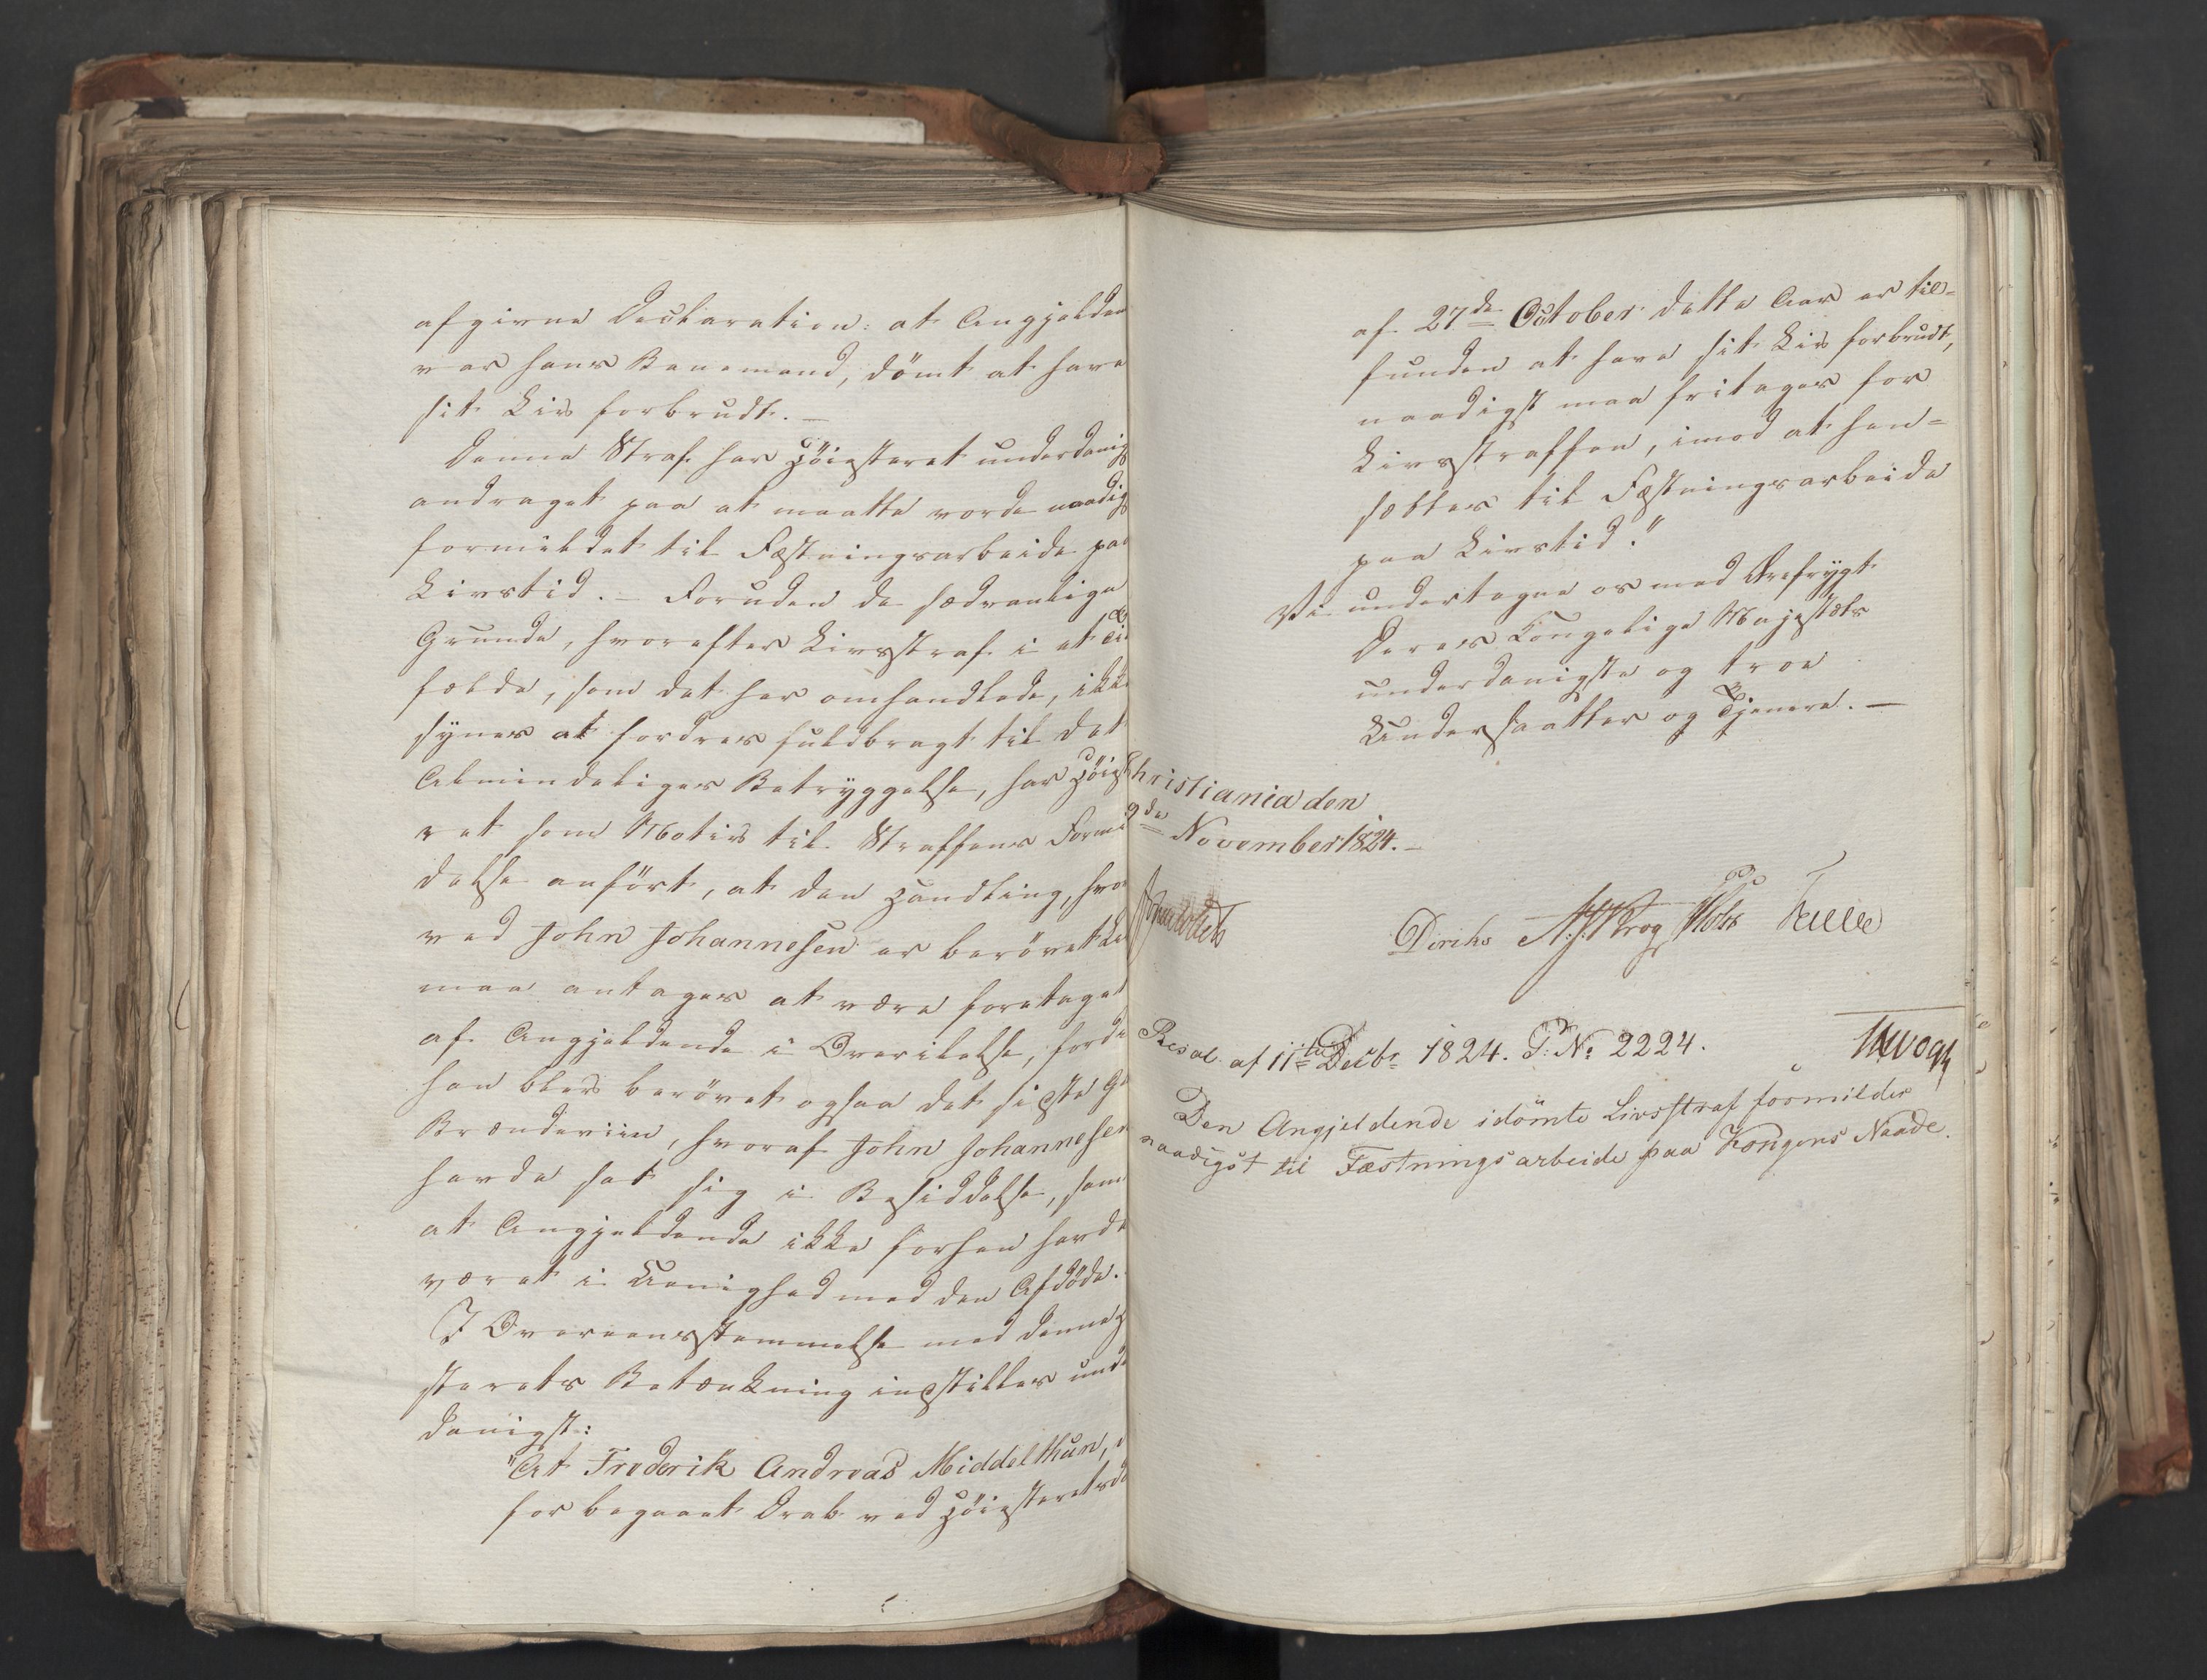 afgivne Declaration: at Angjelden
var hans Banemand, dömt at have
sit Liv forbrudt. —
Denne Straf har Höiesteret underdanig
andraget paa at maatte vorde naadig
formildet til Fæstningsarbeide paa
Livstid. — Foruden de sædvanlige
Grunde, hvorefter Livsstraf i et Til
fælde, som det her omhandlede, ikke
synes at fordres fuldbragt til det
Almindeliges Betryggelse, har Höieste
ret som Motiv til Straffens Formil
delse anført, at den Handling, hvor
ved John Johannesen er berövet Li
maa antages at være foretaget
af Angjeldende i Overilelse, fordi
han blev berövet ogsaa det sidste Gl
Brændeviin, hvoraf John Johannesen
havde sat sig i Besiddelse, samt
at Angjeldende ikke forhen havde
været i Uenighed med den Afdöde.
I Overeensstemmelse med denne H
sterets Betænkning indstilles unde
danigst:
"At Frederik Andreas Middelthun,
for begaaet Drab ved Höiesteretsd
af 27de October dette Aar er til=
funden at have sit Liv forbrudt,
naadigst maa fritages for
Livsstraffen, imod at hen=
sættes til Fæstningsarbeide
paa Livstid."
Vi undertegne os med Ærefrygt
Deres Kongelige Majestæts
underdanigste og troe
Undersaatter og Tjenere. —
Christiania den
9de November 1824. —
Diriks Krog Holst
Resol. af 11te Decbr 1824. P: No 2224.
Vogt
Den Angjeldende idömte Livsstraf formildes
naadigst til Fæstningsarbeide paa Kongens Naade.